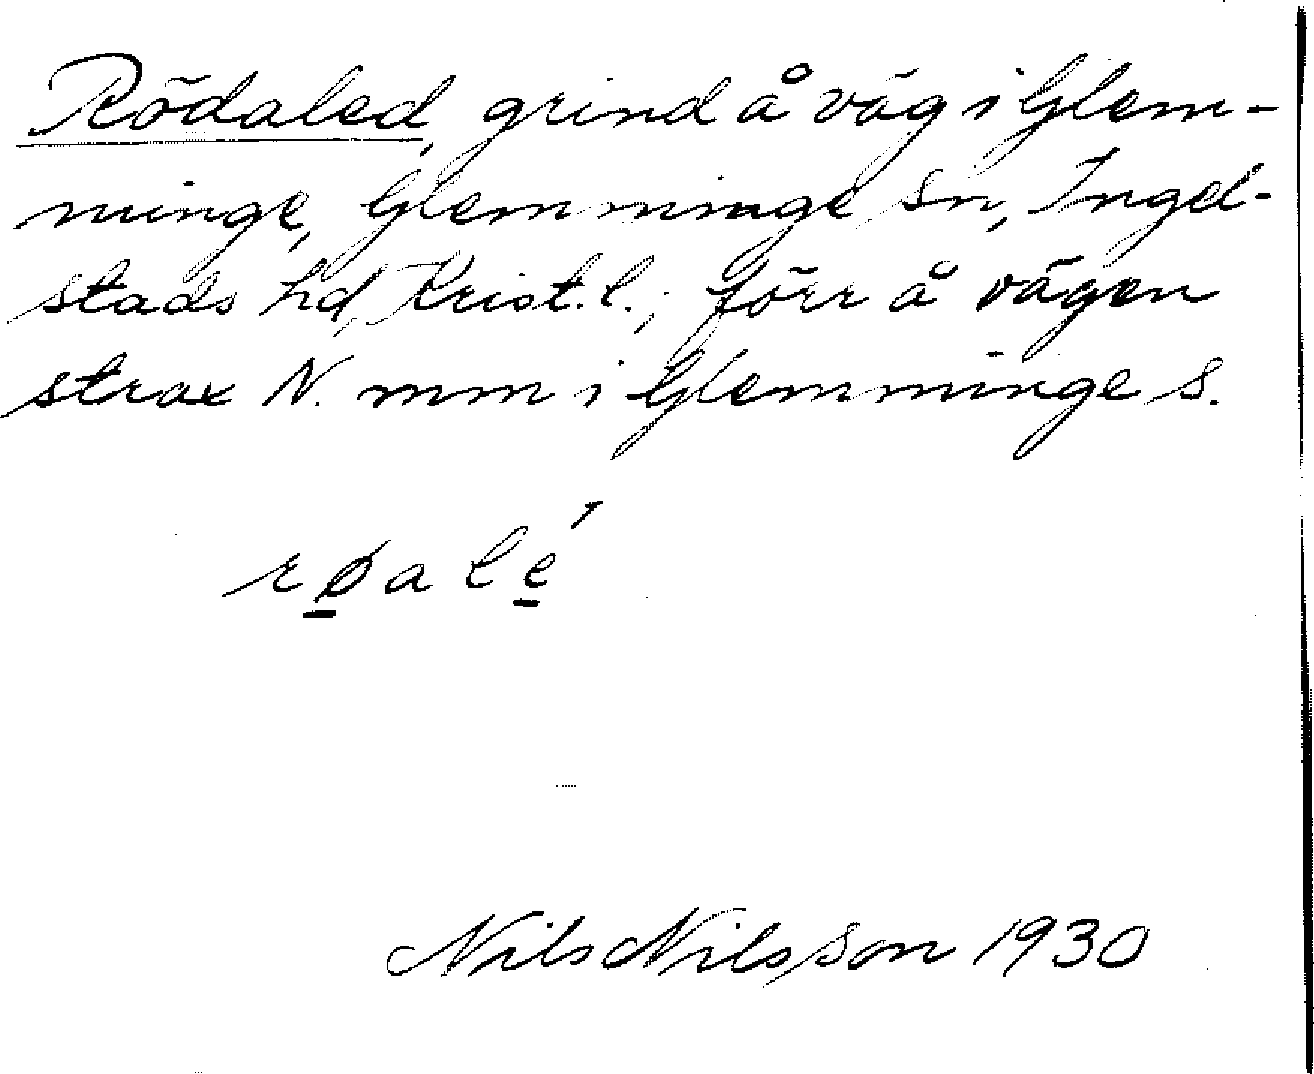 Rödaled, grind å väg i Glem-
minge, Glemminge sn, Ingel-
stads hd, Krist. l.; förr å vägen
strax N. mm i Glemminge s.
røalé
Nils Nilsson 1930